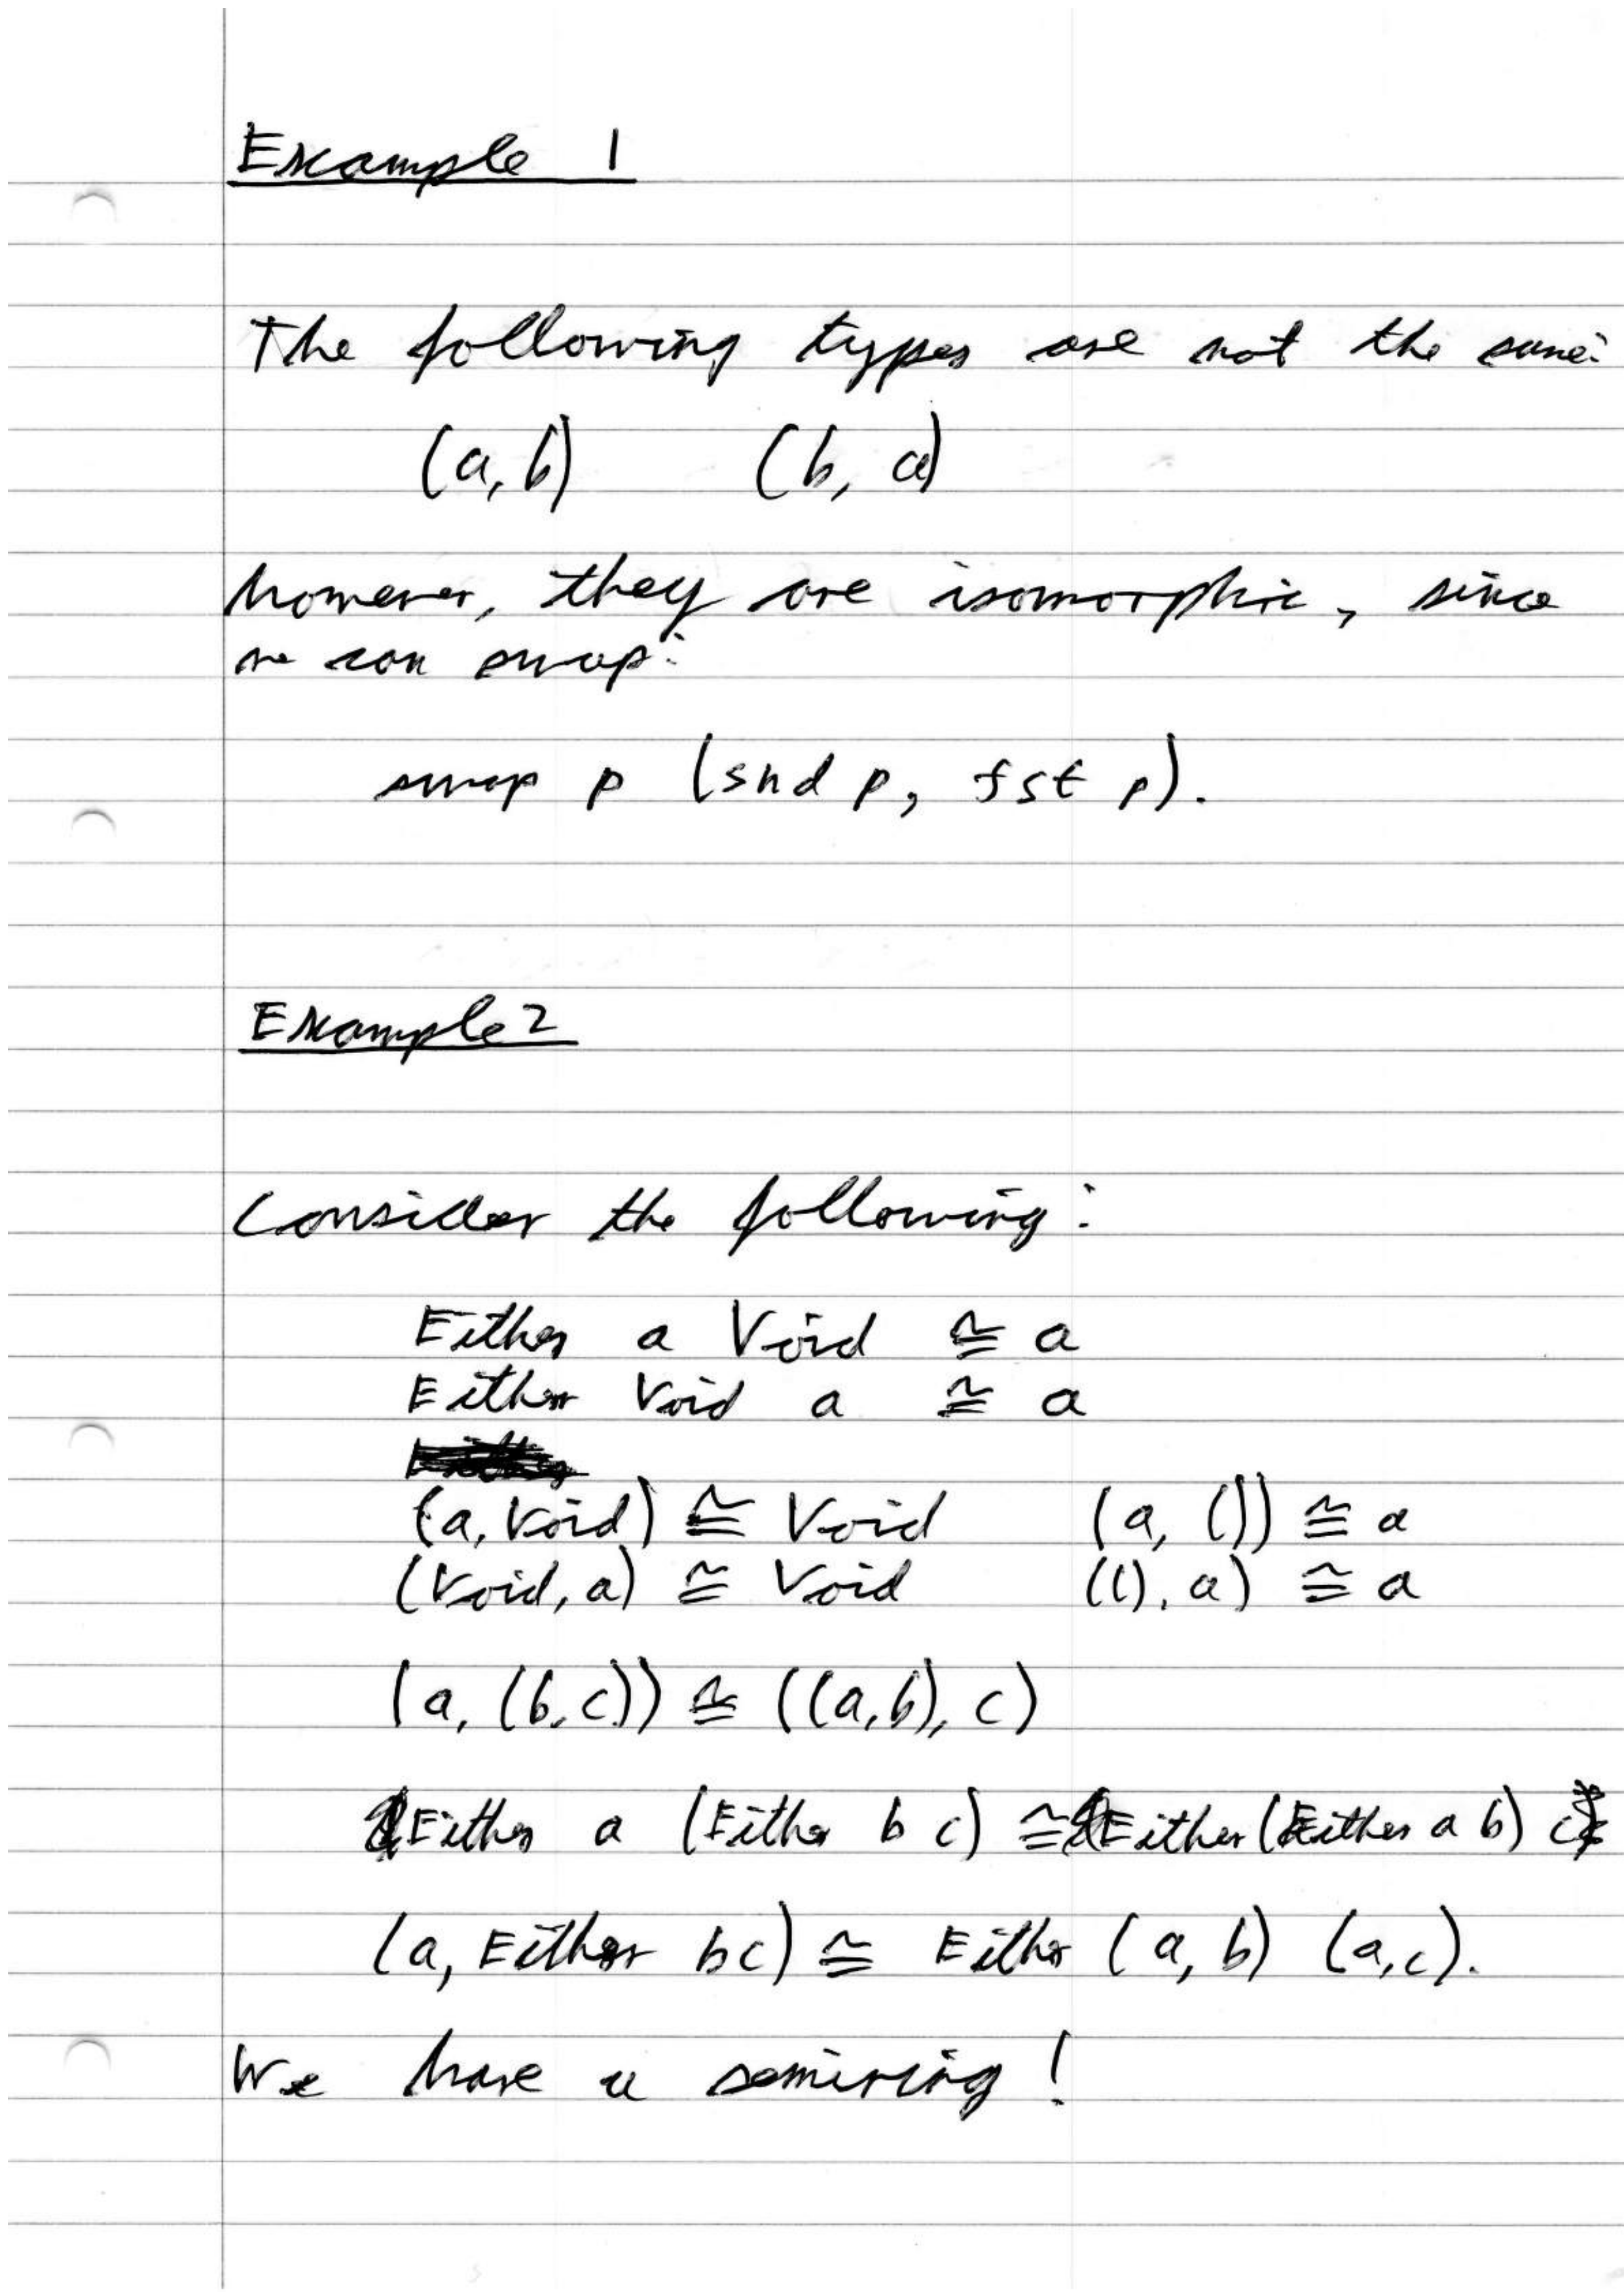 Example 1
The following types are not the same:
(a, b) (b, a)
however, they are isomorphic, since
we can swap:
swap p (snd p, fst p).
Example 2
Consider the following:
Either a Void ≅ a
Either Void a ≅ a
(a, Void) ≅ Void (a, ()) ≅ a
(Void, a) ≅ Void ((), a) ≅ a
(a, (b, c)) ≅ ((a, b), c)
Either a (Either b c) ≅ Either (Either a b) c
(a, Either b c) ≅ Either (a, b) (a, c).
We have a semiring!